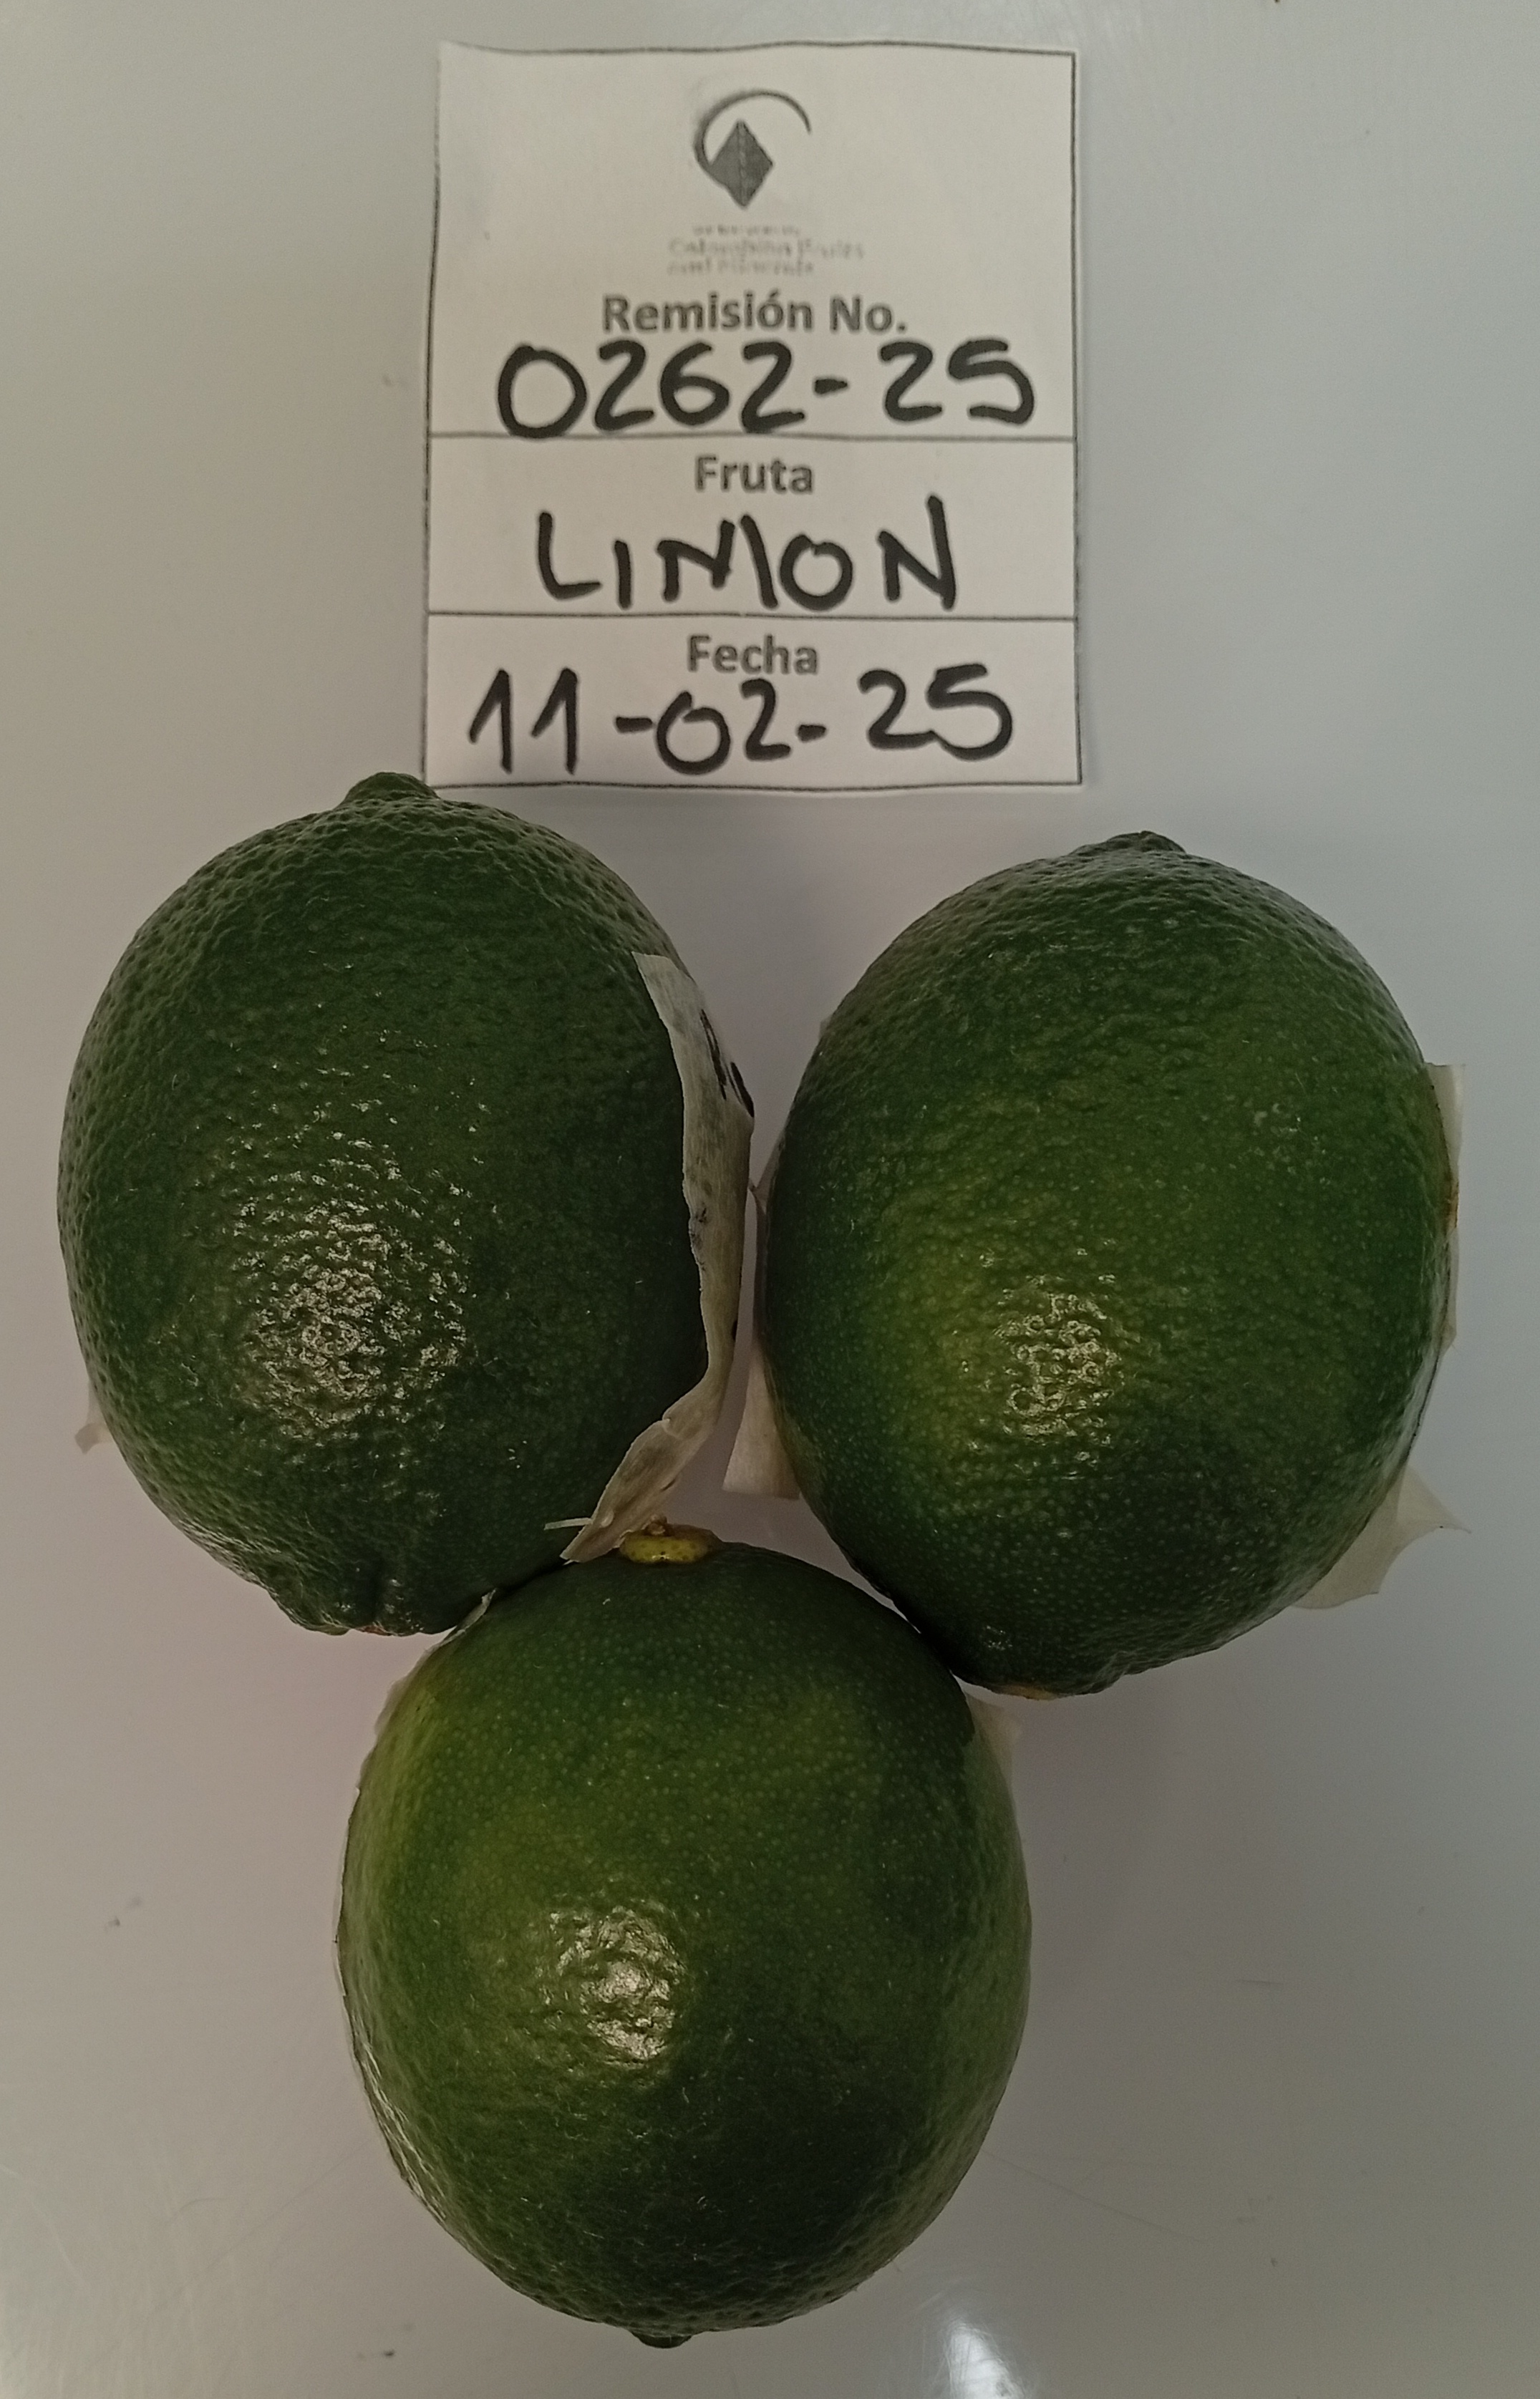 Colombian Fruits
Remisión No.
0262-25
Fruta
LIMON
Fecha
11-02-25